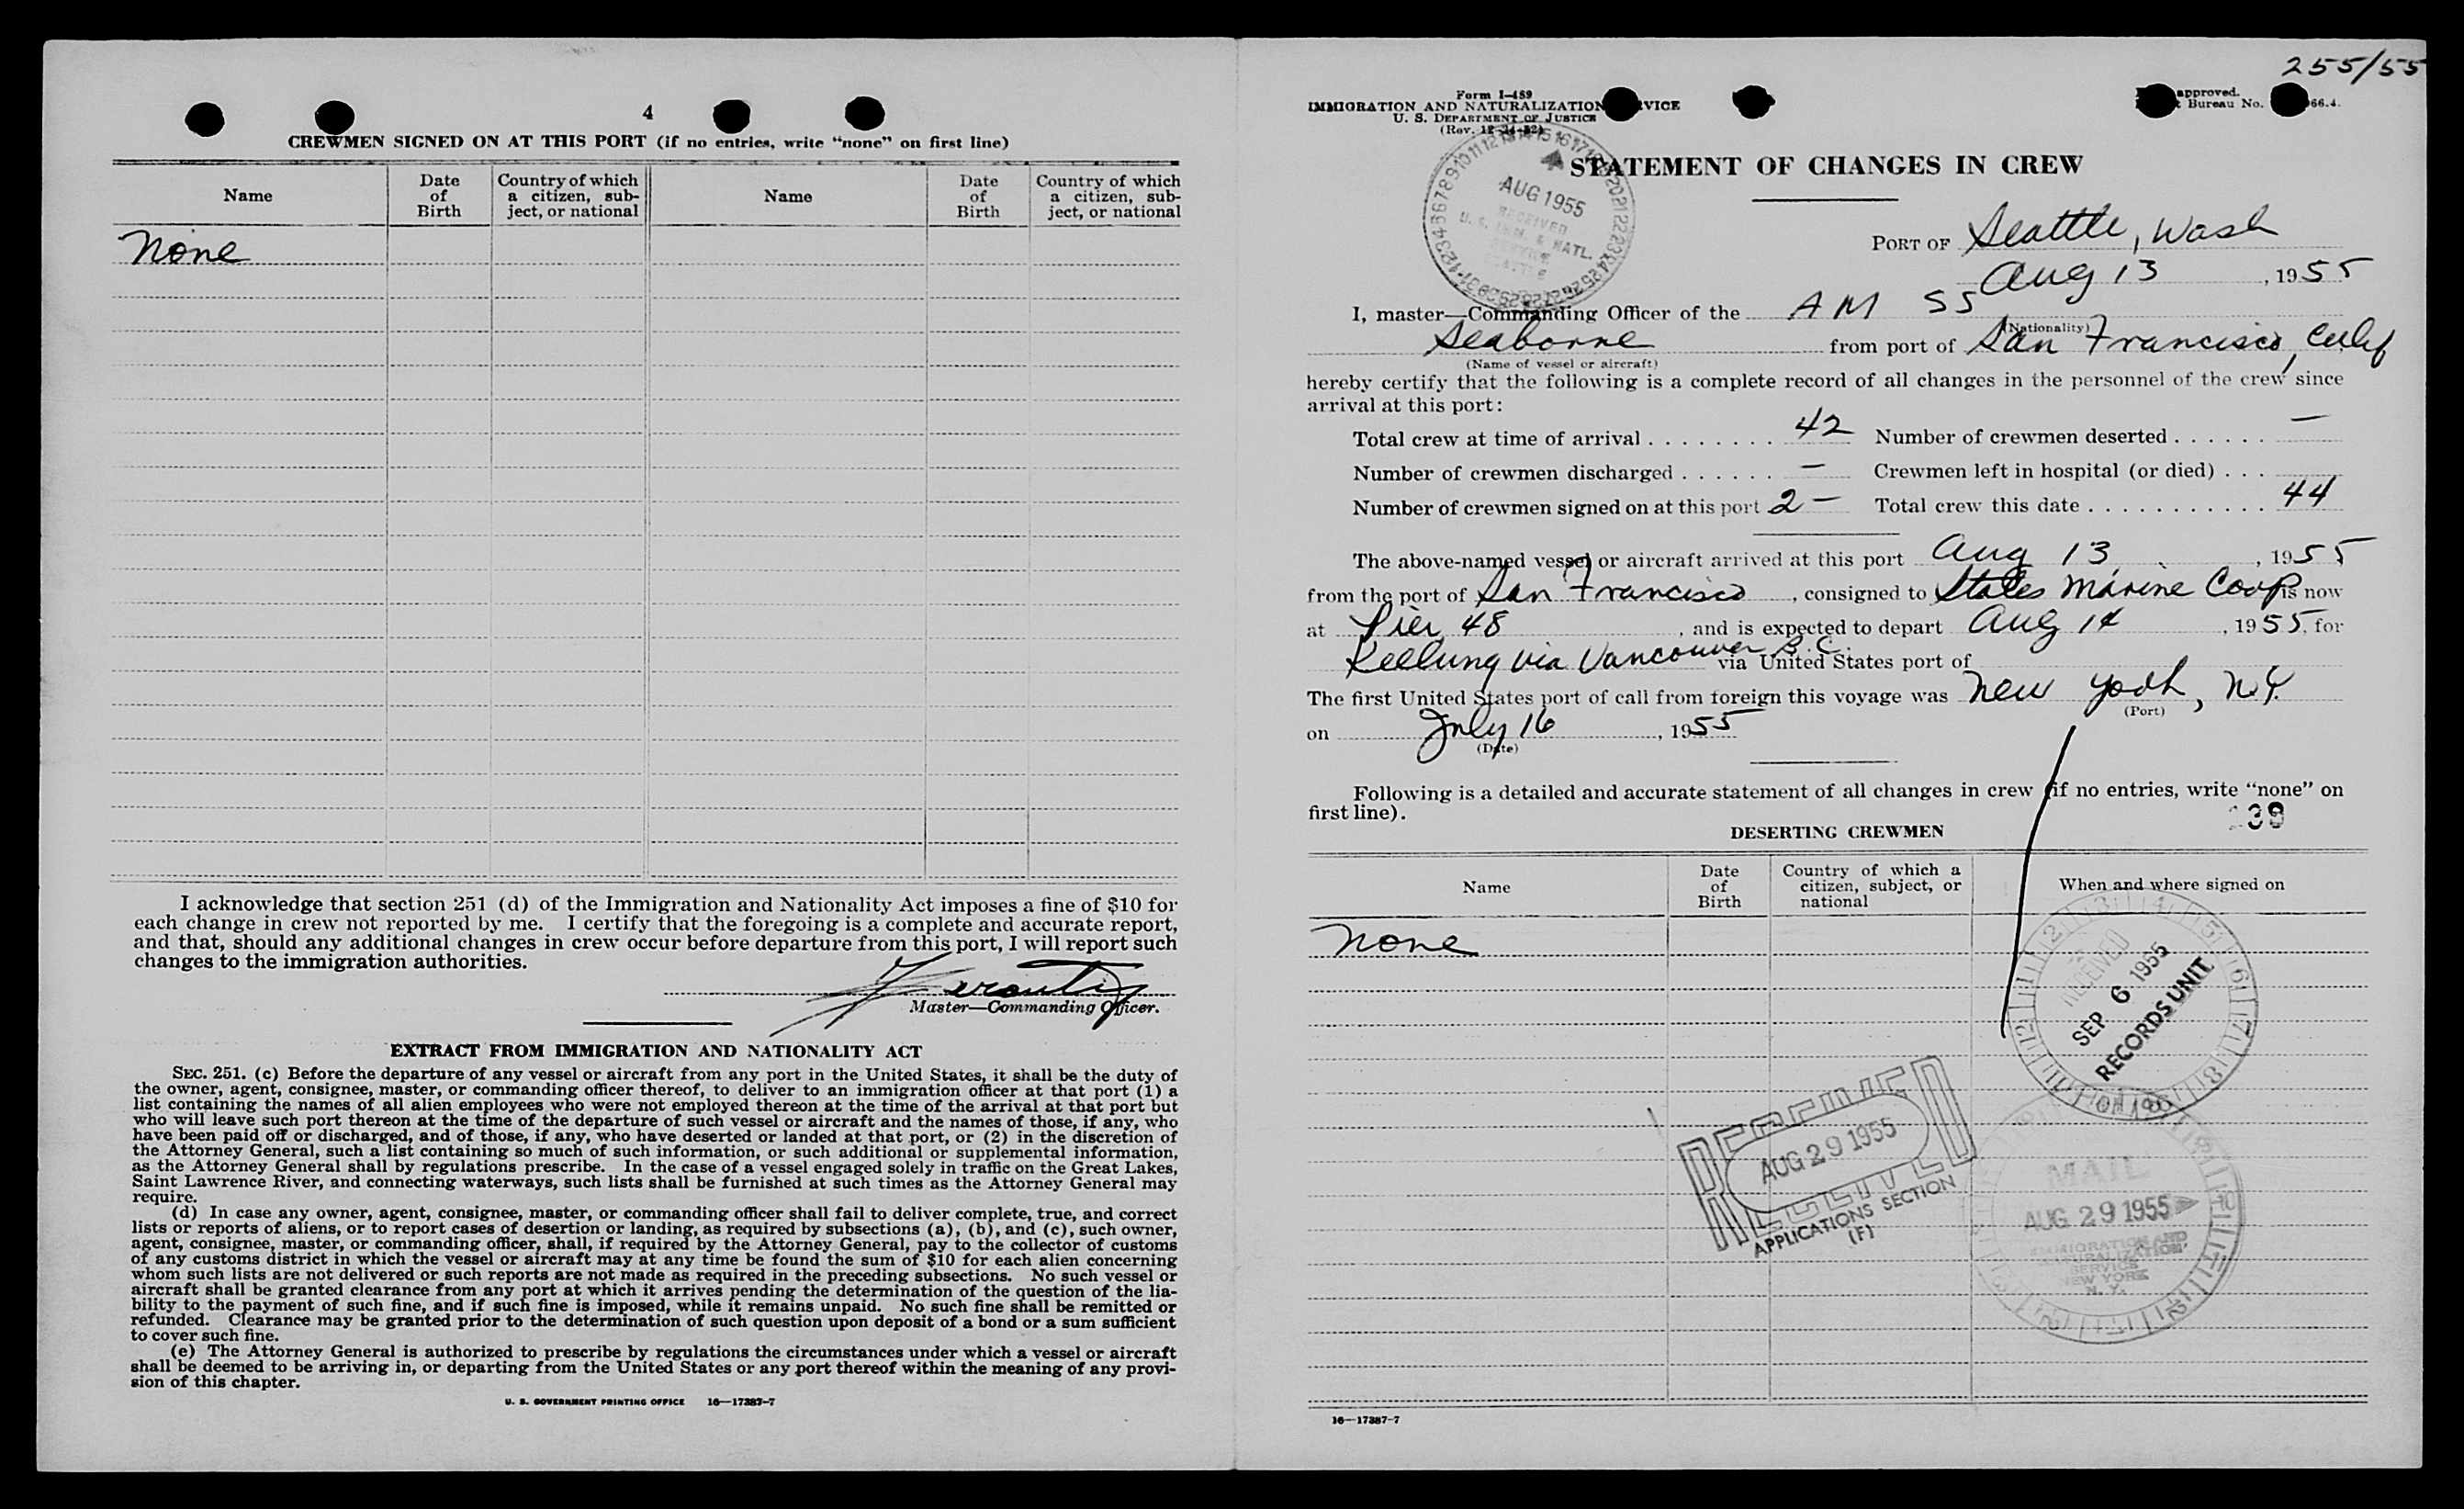 4
CREWMEN SIGNED ON AT THIS PORT (if no entries, write "none" on first line)
Name
Date of Birth
Country of which a citizen, sub-
ject, or national
Name
Date of Birth
Country of which a citizen, sub-
ject, or national
None
I acknowledge that section 251 (d) of the Immigration and Nationality Act imposes a fine of $10 for
each change in crew not reported by me. I certify that the foregoing is a complete and accurate report,
and that, should any additional changes in crew occur before departure from this port, I will report such
changes to the immigration authorities.
Master—Commanding Officer.
EXTRACT FROM IMMIGRATION AND NATIONALITY ACT
SEC. 251. (c) Before the departure of any vessel or aircraft from any port in the United States, it shall be the duty of
the owner, agent, consignee, master, or commanding officer thereof, to deliver to an immigration officer at that port (1) a
list containing the names of all alien employees who were not employed thereon at the time of the arrival at that port but
who will leave such port thereon at the time of the departure of such vessel or aircraft and the names of those, if any, who
have been paid off or discharged, and of those, if any, who have deserted or landed at that port, or (2) in the discretion of
the Attorney General, such a list containing so much of such information, or such additional or supplemental information,
as the Attorney General shall by regulations prescribe. In the case of a vessel engaged solely in traffic on the Great Lakes,
Saint Lawrence River, and connecting waterways, such lists shall be furnished at such times as the Attorney General may
require.
(d) In case any owner, agent, consignee, master, or commanding officer shall fail to deliver complete, true, and correct
lists or reports of aliens, or to report cases of desertion or landing, as required by subsections (a), (b), and (c), such owner,
agent, consignee, master, or commanding officer, shall, if required by the Attorney General, pay to the collector of customs
of any customs district in which the vessel or aircraft may at any time be found the sum of $10 for each alien concerning
whom such lists are not delivered or such reports are not made as required in the preceding subsections. No such vessel or
aircraft shall be granted clearance from any port at which it arrives pending the determination of the question of the lia-
bility to the payment of such fine, and if such fine is imposed, while it remains unpaid. No such fine shall be remitted or
refunded. Clearance may be granted prior to the determination of such question upon deposit of a bond or a sum sufficient
to cover such fine.
(e) The Attorney General is authorized to prescribe by regulations the circumstances under which a vessel or aircraft
shall be deemed to be arriving in, or departing from the United States or any port thereof within the meaning of any provi-
sion of this chapter.
U. S. GOVERNMENT PRINTING OFFICE 16—17387-7
255/55
Form I-489
IMMIGRATION AND NATURALIZATION VICE
U. S. DEPARTMENT OF JUSTICE
approved.
Bureau No. 66.4.
STATEMENT OF CHANGES IN CREW
AUG 1955
RECEIVED
PORT OF Seattle, Wash
Aug 13, 1955
I, master—Commanding Officer of the AM SS
(Nationality)
Seaborne from port of San Francisco, Calif
(Name of vessel or aircraft)
hereby certify that the following is a complete record of all changes in the personnel of the crew since
arrival at this port:
Total crew at time of arrival 42 Number of crewmen deserted —
Number of crewmen discharged — Crewmen left in hospital (or died)
Number of crewmen signed on at this port 2 — Total crew this date 44
The above-named vessel or aircraft arrived at this port Aug 13, 1955
from the port of San Francisco, consigned to States Marine Corp is now
at Pier 48, and is expected to depart Aug 14, 1955, for
Keelung via Vancouver B.C. via United States port of
The first United States port of call from foreign this voyage was New York, N.Y.
(Port)
on July 16, 1955
(Date)
Following is a detailed and accurate statement of all changes in crew (if no entries, write "none" on
first line).
39
DESERTING CREWMEN
Name
Date of Birth
Country of which a citizen, subject, or national
When and where signed on
None
RECEIVED
SEP 6 1955
RECORDS UNIT
RECEIVED
AUG 29 1955
APPLICATIONS SECTION
(F)
MAIL
AUG 29 1955
IMMIGRATION AND
NATURALIZATION
SERVICE
NEW YORK
N. Y.
16—17387-7